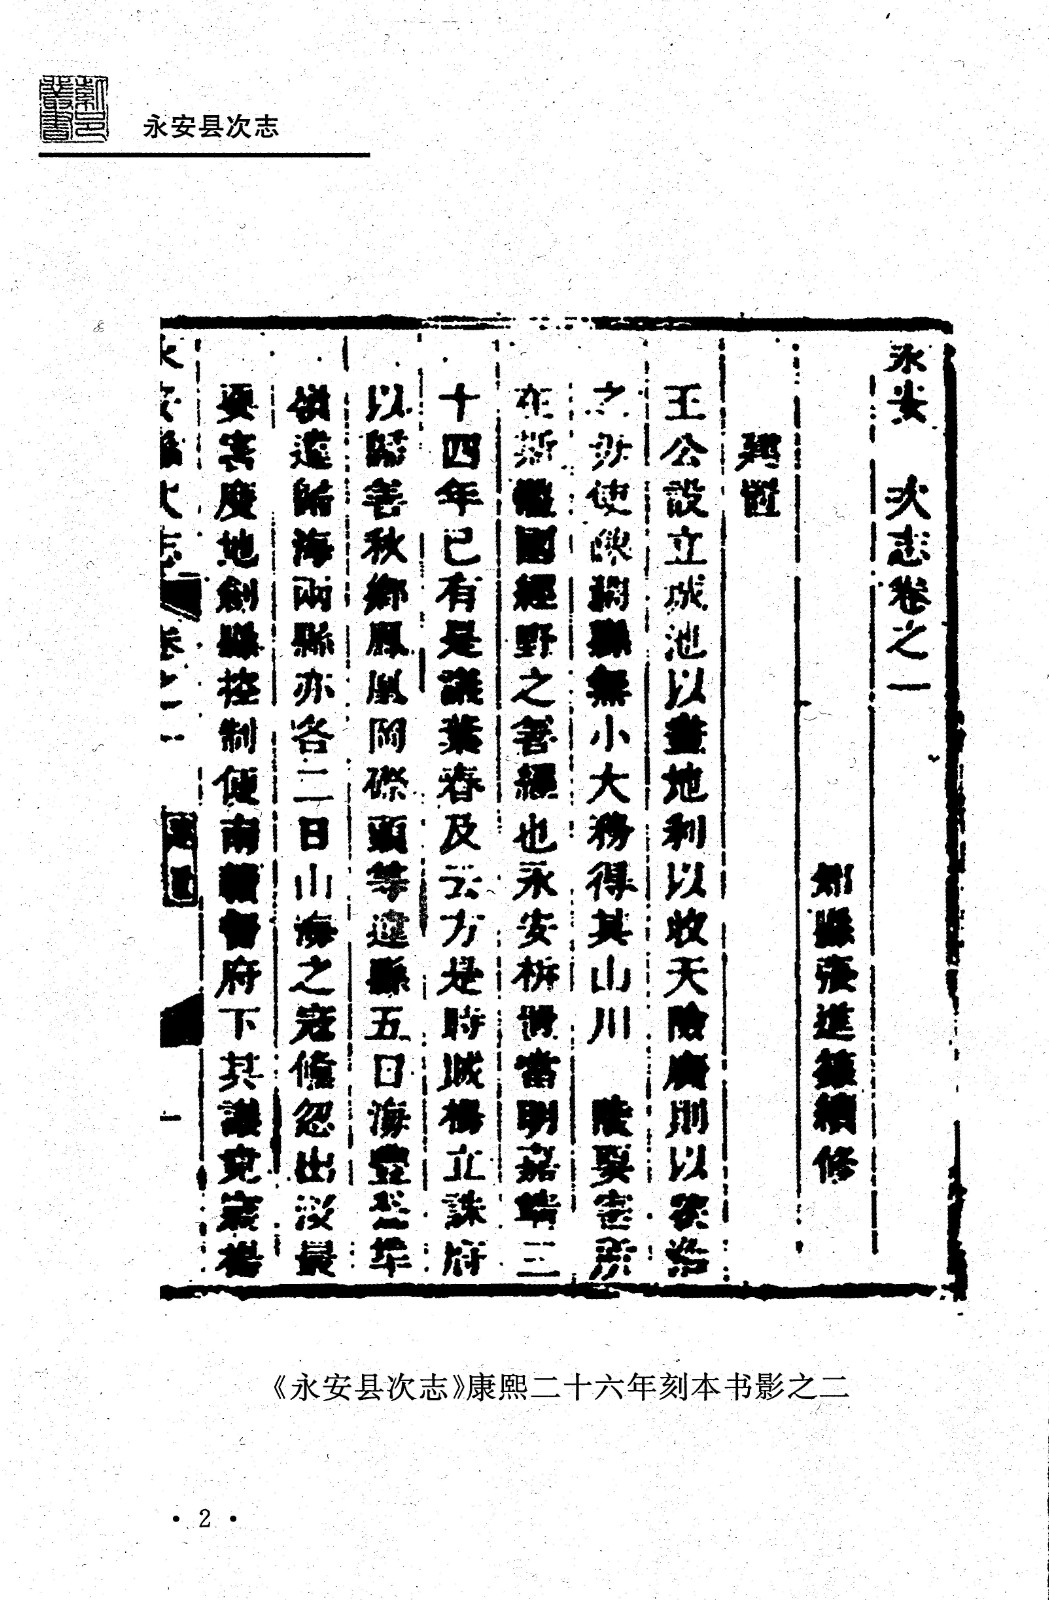 永安县次志
永安　次志卷之一
知縣張進籙續修
建置
王公設立城池以畫地利以收天險廣則以
之所使陝關縣無小大務得其山川　陵要害所
在斯體國經野之善經也永安析置當明嘉靖三
十四年已有是議葉春及云方是時城楊立誅府
以歸善秋鄉鳳凰岡磜頭等違縣五日海豐
嶺遠歸海兩縣亦各二日山海之寇倏忽出沒最
要害度地創縣控制便南贛督府下其議竟寢楊
永安縣次志
卷之一
建置
一
《永安县次志》康熙二十六年刻本书影之二
· 2 ·